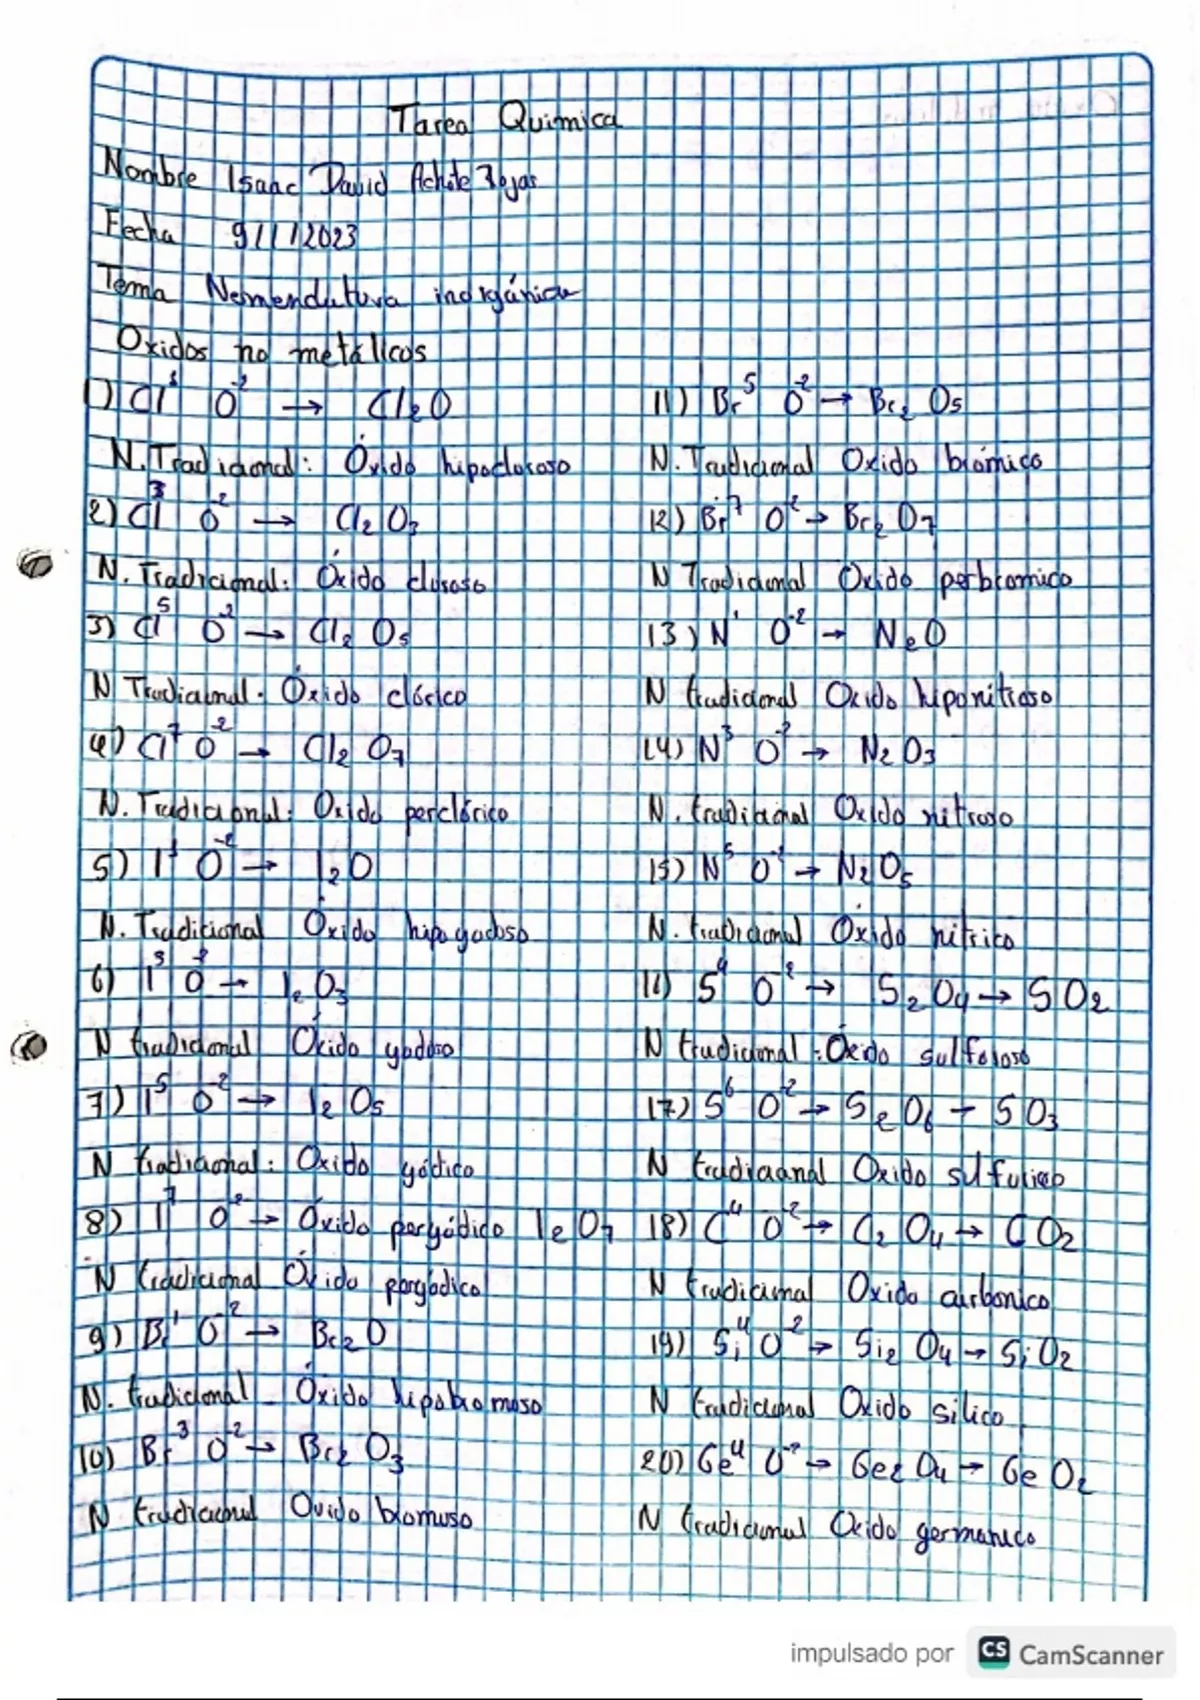 Tarea Quimica
Nombre Isaac David Achote Rojas
Fecha 9/1/2023
Tema Nomenclatura inorgánica
Oxidos no metálicos
1) Cl¹ O⁻² → Cl₂O
N. Tradicional: Óxido hipocloroso
2) Cl³ O⁻² → Cl₂ O₃
N. Tradicional: Óxido cloroso
3) Cl⁵ O⁻² → Cl₂ O₅
N Tradicional. Óxido clórico
4) Cl⁷ O⁻² → Cl₂ O₇
N. Tradicional: Oxido perclórico
5) I¹ O⁻² → I₂O
N. Tradicional Óxido hipoyodoso
6) I³ O⁻² → I₂ O₃
N tradicional Óxido yodoso
7) I⁵ O⁻² → I₂ O₅
N tradicional: Oxido yódico
8) I⁷ O⁻² → Óxido peryódico I₂ O₇
N tradicional Óxido peryódico
9) Br¹ O⁻² → Br₂ O
N. tradicional Óxido hipobromoso
10) Br³ O⁻² → Br₂ O₃
N tradicional Oxido bromoso
11) Br⁵ O⁻² → Br₂ O₅
N. Tradicional Oxido brómico
12) Br⁷ O² → Br₂ O₇
N Tradicional Oxido perbromico
13) N¹ O⁻² → N₂O
N tradicional Oxido hiponitroso
14) N³ O⁻² → N₂ O₃
N. tradicional Oxido nitroso
15) N⁵ O⁻² → N₂ O₅
N. tradicional Óxido nitrico
16) S⁴ O⁻² → S₂ O₄ → SO₂
N tradicional: Óxido sulfuroso
17) S⁶ O⁻² → S₂ O₆ → SO₃
N tradicional Oxido sulfurico
18) C⁴ O⁻² → C₂ O₄ → CO₂
N tradicional Oxido carbonico
19) Si⁴ O² → Si₂ O₄ → Si O₂
N tradicional Oxido silico
20) Ge⁴ O⁻² → Ge₂ O₄ → Ge O₂
N tradicional Oxido germanico
impulsado por CS CamScanner